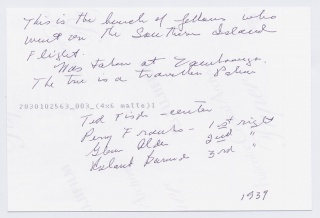 This is the bunch of fellows who
went on the Southern Island
Flight.
Was taken at Zamboanga.
The tree is a travellers Palm
2030102563_003_(4x6 matte)1
Ted Fish - center
Perry Franks - 1st right
Glenn Alder 2nd "
Leland Barnard 3rd "
1937